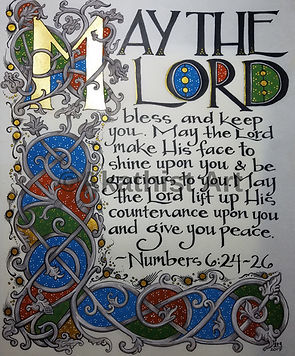 MAY THE
LORD
bless and keep
you. May the Lord
make His face to
shine upon you & be
gracious to you! May
the Lord lift up His
countenance upon you
and give you peace.
~Numbers 6:24-26